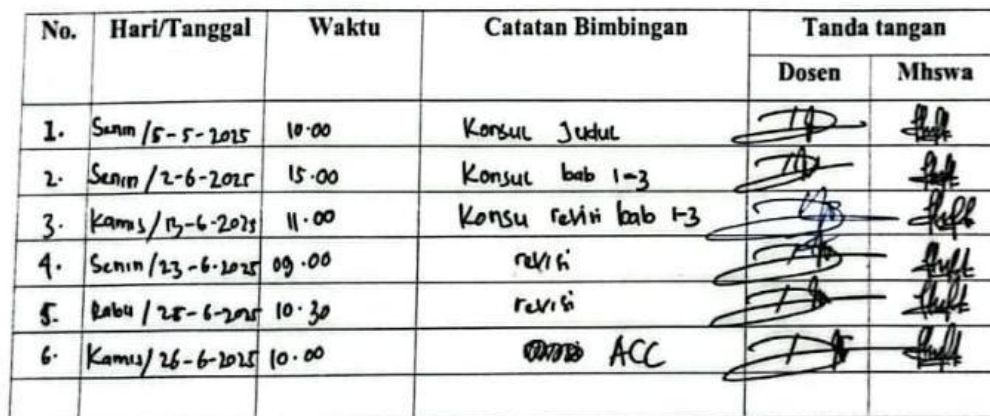 No. Hari/Tanggal Waktu Catatan Bimbingan Tanda tangan
Dosen Mhswa
1. Senin / 5-5-2025 10.00 Konsul Judul
2. Senin / 2-6-2025 15.00 Konsul bab 1-3
3. Kamis / 13-6-2025 11.00 Konsu revisi bab 1-3
4. Senin / 23-6-2025 09.00 revisi
5. Rabu / 25-6-2025 10.30 revisi
6. Kamis / 26-6-2025 10.00 ACC